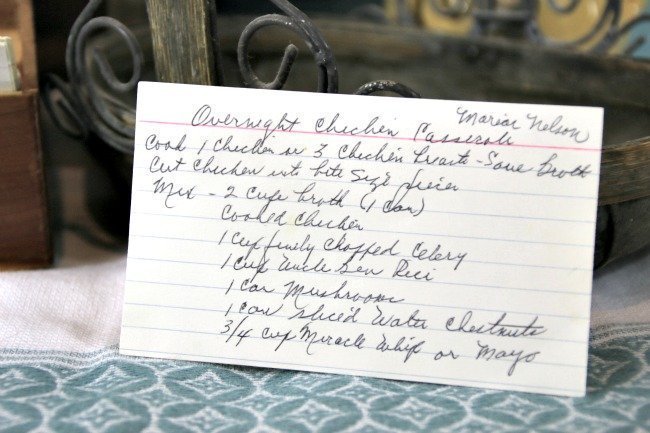 Marian Nelson
Overnight Chicken Casserole
Cook 1 Chicken or 3 Chicken breasts - Save broth
Cut Chicken into bite size pieces
Mix - 2 cups broth (1 can)
Cooked Chicken
1 cup finely chopped Celery
1 cup Uncle Ben Rice
1 can Mushrooms
1 can sliced Water Chestnuts
3/4 cup Miracle Whip or Mayo